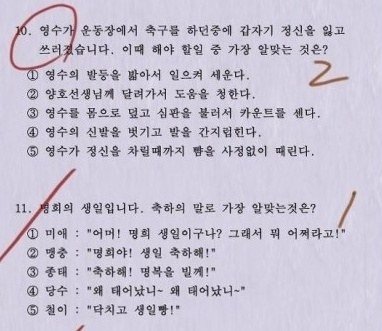 10. 영수가 운동장에서 축구를 하던중에 갑자기 정신을 잃고
쓰러졌습니다. 이때 해야 할일 중 가장 알맞는 것은?
① 영수의 발등을 밟아서 일으켜 세운다.
② 양호선생님께 달려가서 도움을 청한다.
③ 영수를 몸으로 덮고 심판을 불러서 카운트를 센다.
④ 영수의 신발을 벗기고 발을 간지럽힌다.
⑤ 영수가 정신을 차릴때까지 뺨을 사정없이 때린다.
2
11. 명희의 생일입니다. 축하의 말로 가장 알맞는것은?
① 미애 : "어머! 명희 생일이구나? 그래서 뭐 어쩌라고!"
② 맹충 : "명희야! 생일 축하해!"
③ 종태 : "축하해! 명복을 빌께!"
④ 당수 : "왜 태어났니~ 왜 태어났니~"
⑤ 철이 : "닥치고 생일빵!"
1